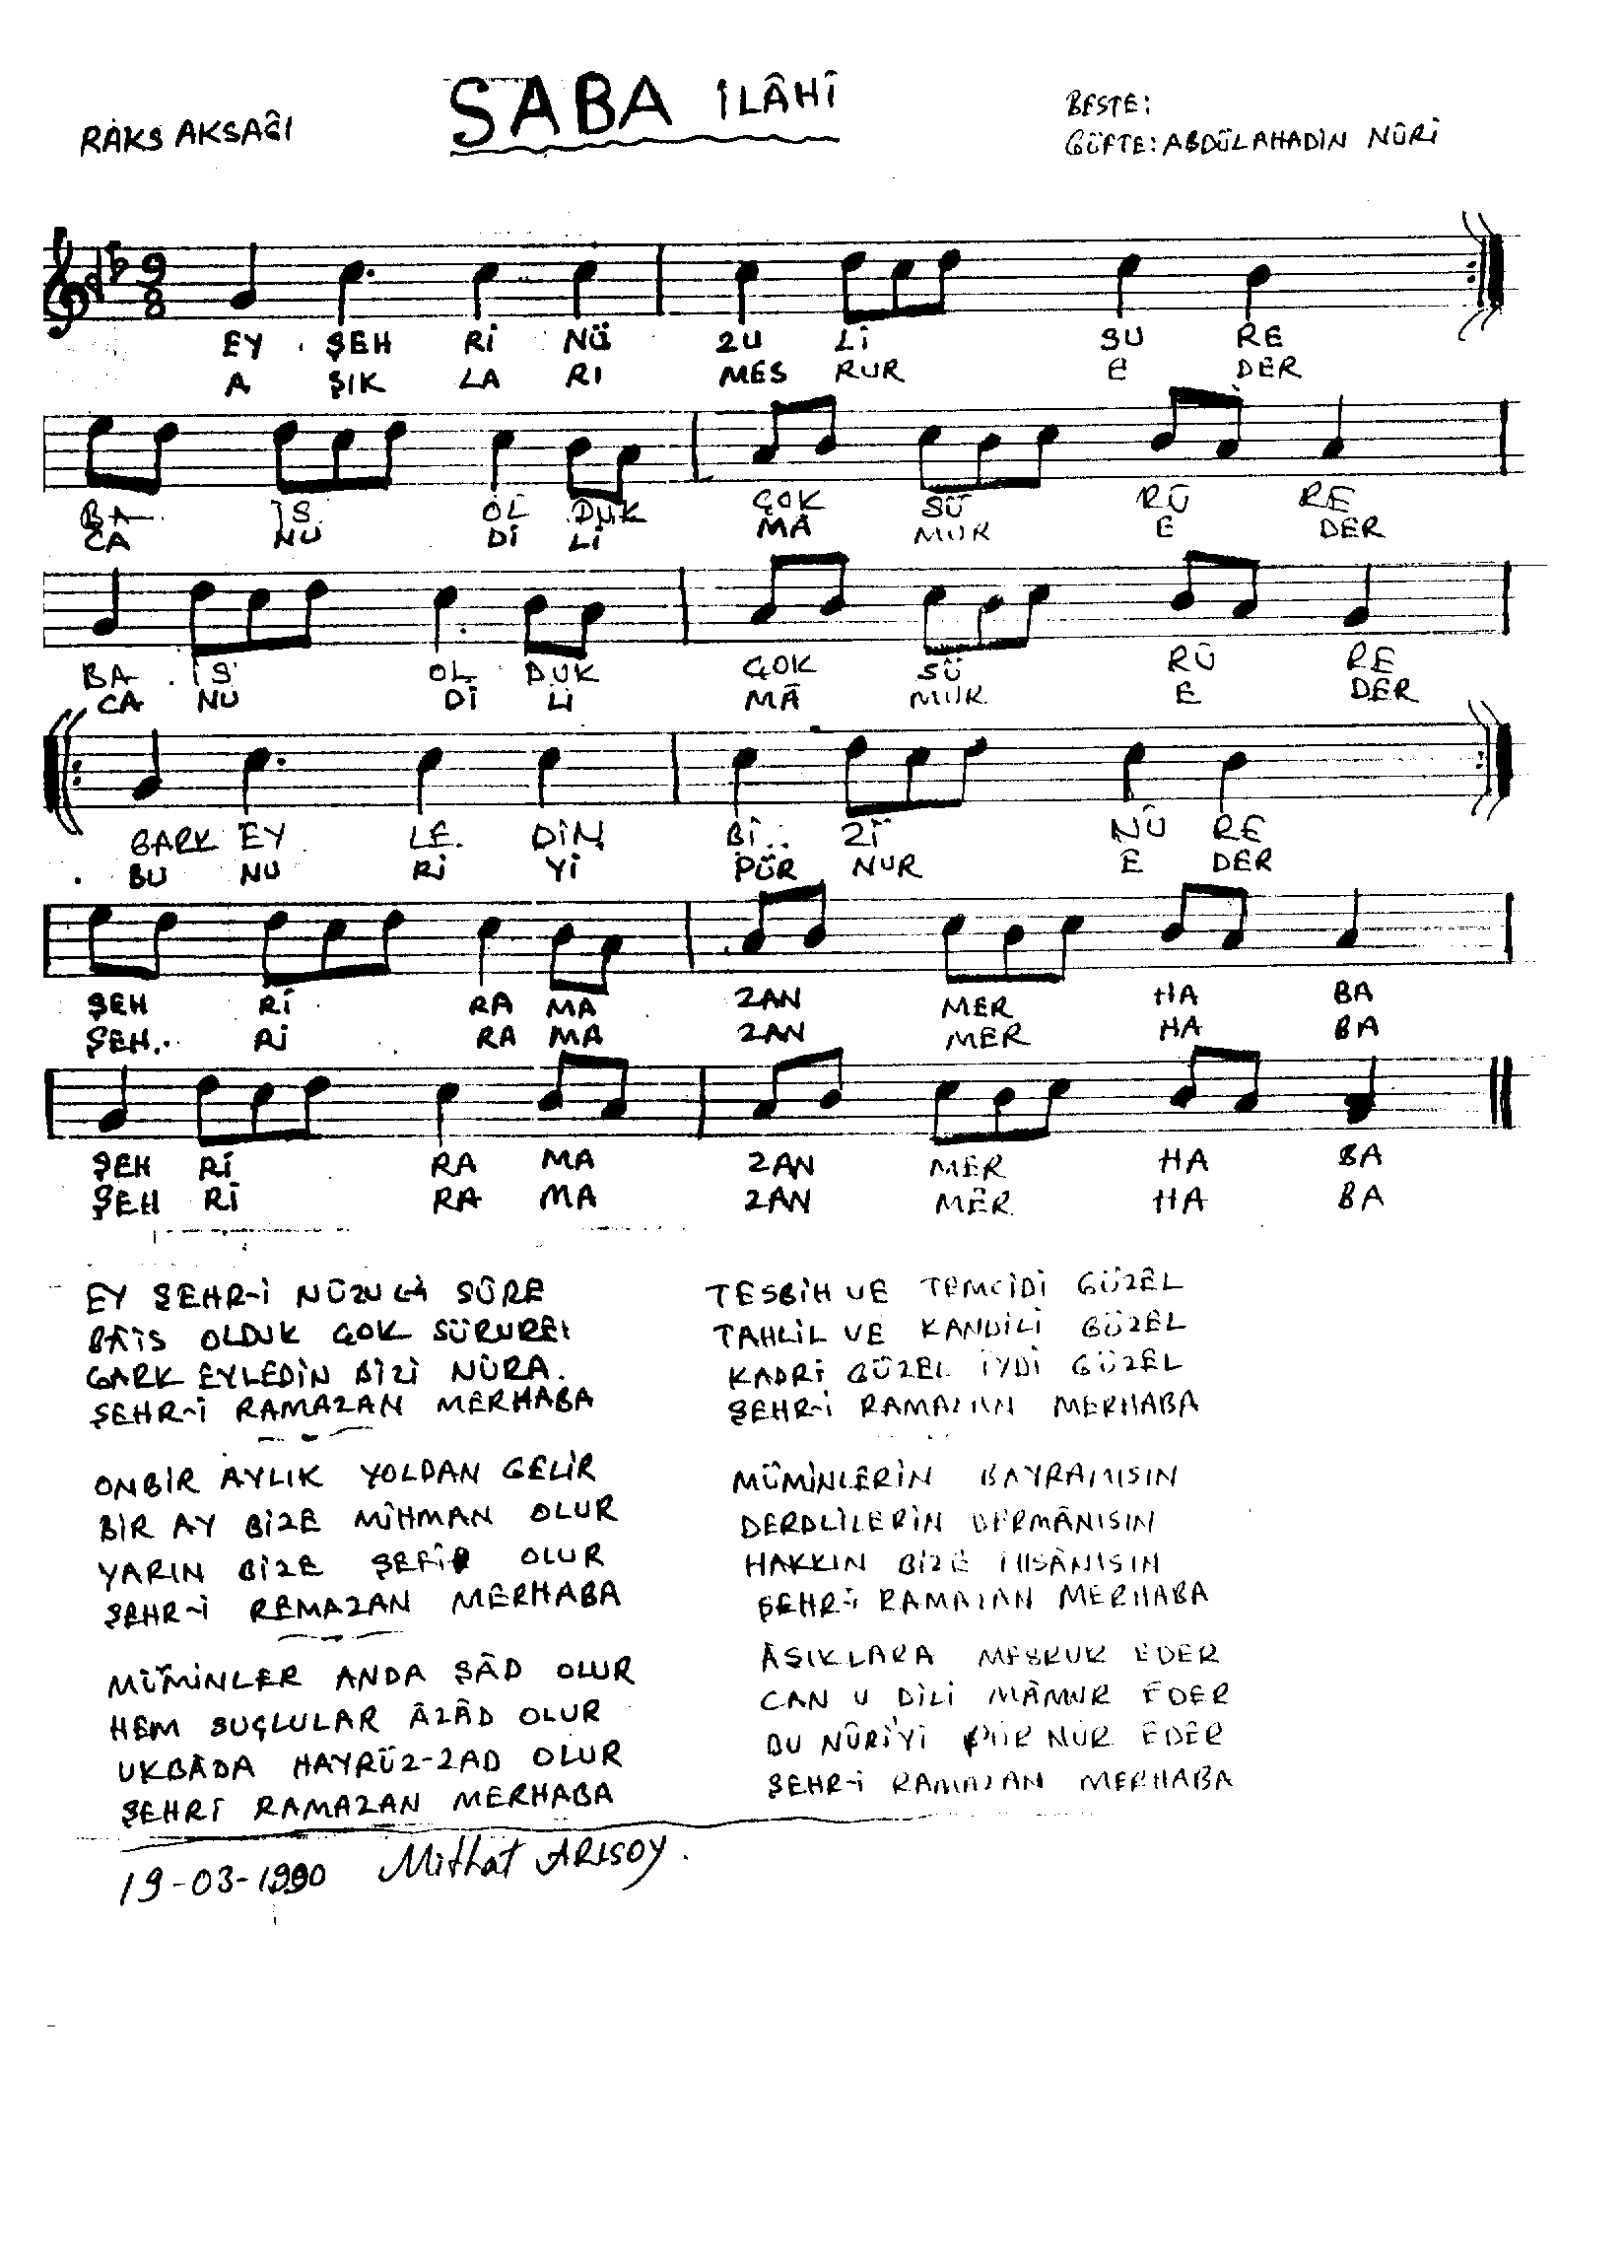 SABA İLÂHİ
RAKS AKSAĞI
BESTE:
GÜFTE: ABDÜLAHADİN NÛRİ
9
8
EY ŞEH Rİ NÜ ZU Lİ SU RE
A ŞIK LA RI MES RUR E DER
BA İS OL DUK ÇOK SÜ RÛ RE
CA NU Dİ Lİ MA MUR E DER
BA İS OL DUK ÇOK SÜ RÛ RE
CA NU Dİ Lİ MÂ MUR E DER
GARK EY LE DİN Bİ Zİ NÛ RE
BU NU Rİ Yİ PÜR NUR E DER
ŞEH Rİ RA MA ZAN MER HA BA
ŞEH Rİ RA MA ZAN MER HA BA
ŞEH Rİ RA MA ZAN MER HA BA
ŞEH Rİ RA MA ZAN MER HA BA
EY ŞEHR-İ NÜZUL-İ SÛRE
BÂİS OLDUK ÇOK SÜRURE
GARK EYLEDİN BİZİ NÛRA.
ŞEHR-İ RAMAZAN MERHABA
ONBİR AYLIK YOLDAN GELİR
BİR AY BİZE MİHMAN OLUR
YARIN BİZE OLUR
ŞEHR-İ REMAZAN MERHABA
MÜMİNLER ANDA ŞÂD OLUR
HEM SUÇLULAR ÂZÂD OLUR
UKBADA HAYRÜZ-ZAD OLUR
ŞEHRİ RAMAZAN MERHABA
TESBİH VE TEMCİDİ GÜZEL
TAHLİL VE KANDİLİ GÜZEL
KADRİ GÜZEL İYDİ GÜZEL
ŞEHR-İ RAMAZAN MERHABA
MÜMİNLERİN BAYRAMISIN
DERDLİLERİN DERMÂNISIN
HAKKIN BİZE İHSÂNISIN
ŞEHR-İ RAMAZAN MERHABA
ÂŞIKLARA MESRUR EDER
CAN U DİLİ MÂMUR EDER
BU NÛRİ'Yİ PÜR NUR EDER
ŞEHR-İ RAMAZAN MERHABA
19-03-1990 Mithat ARISOY.